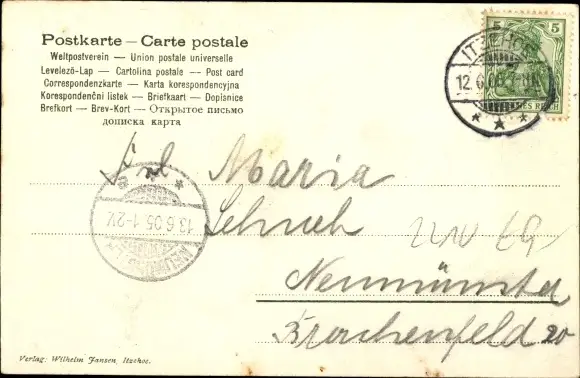 Postkarte — Carte postale
Weltpostverein — Union postale universelle
Levelező-Lap — Cartolina postale — Post card
Correspondenzkarte — Karta korespondencyjna
Korespondenční listek — Briefkaart — Dopisnice
Brefkort — Brev-Kort — Открытое письмо
дописка карта
5 5
ITZEHOE
12.6.05
REICH
Frl Maria
Schuch
13.6.05.1-2V.
Neumünster
Brachenfeld 20
Verlag: Wilhelm Jansen, Itzehoe.